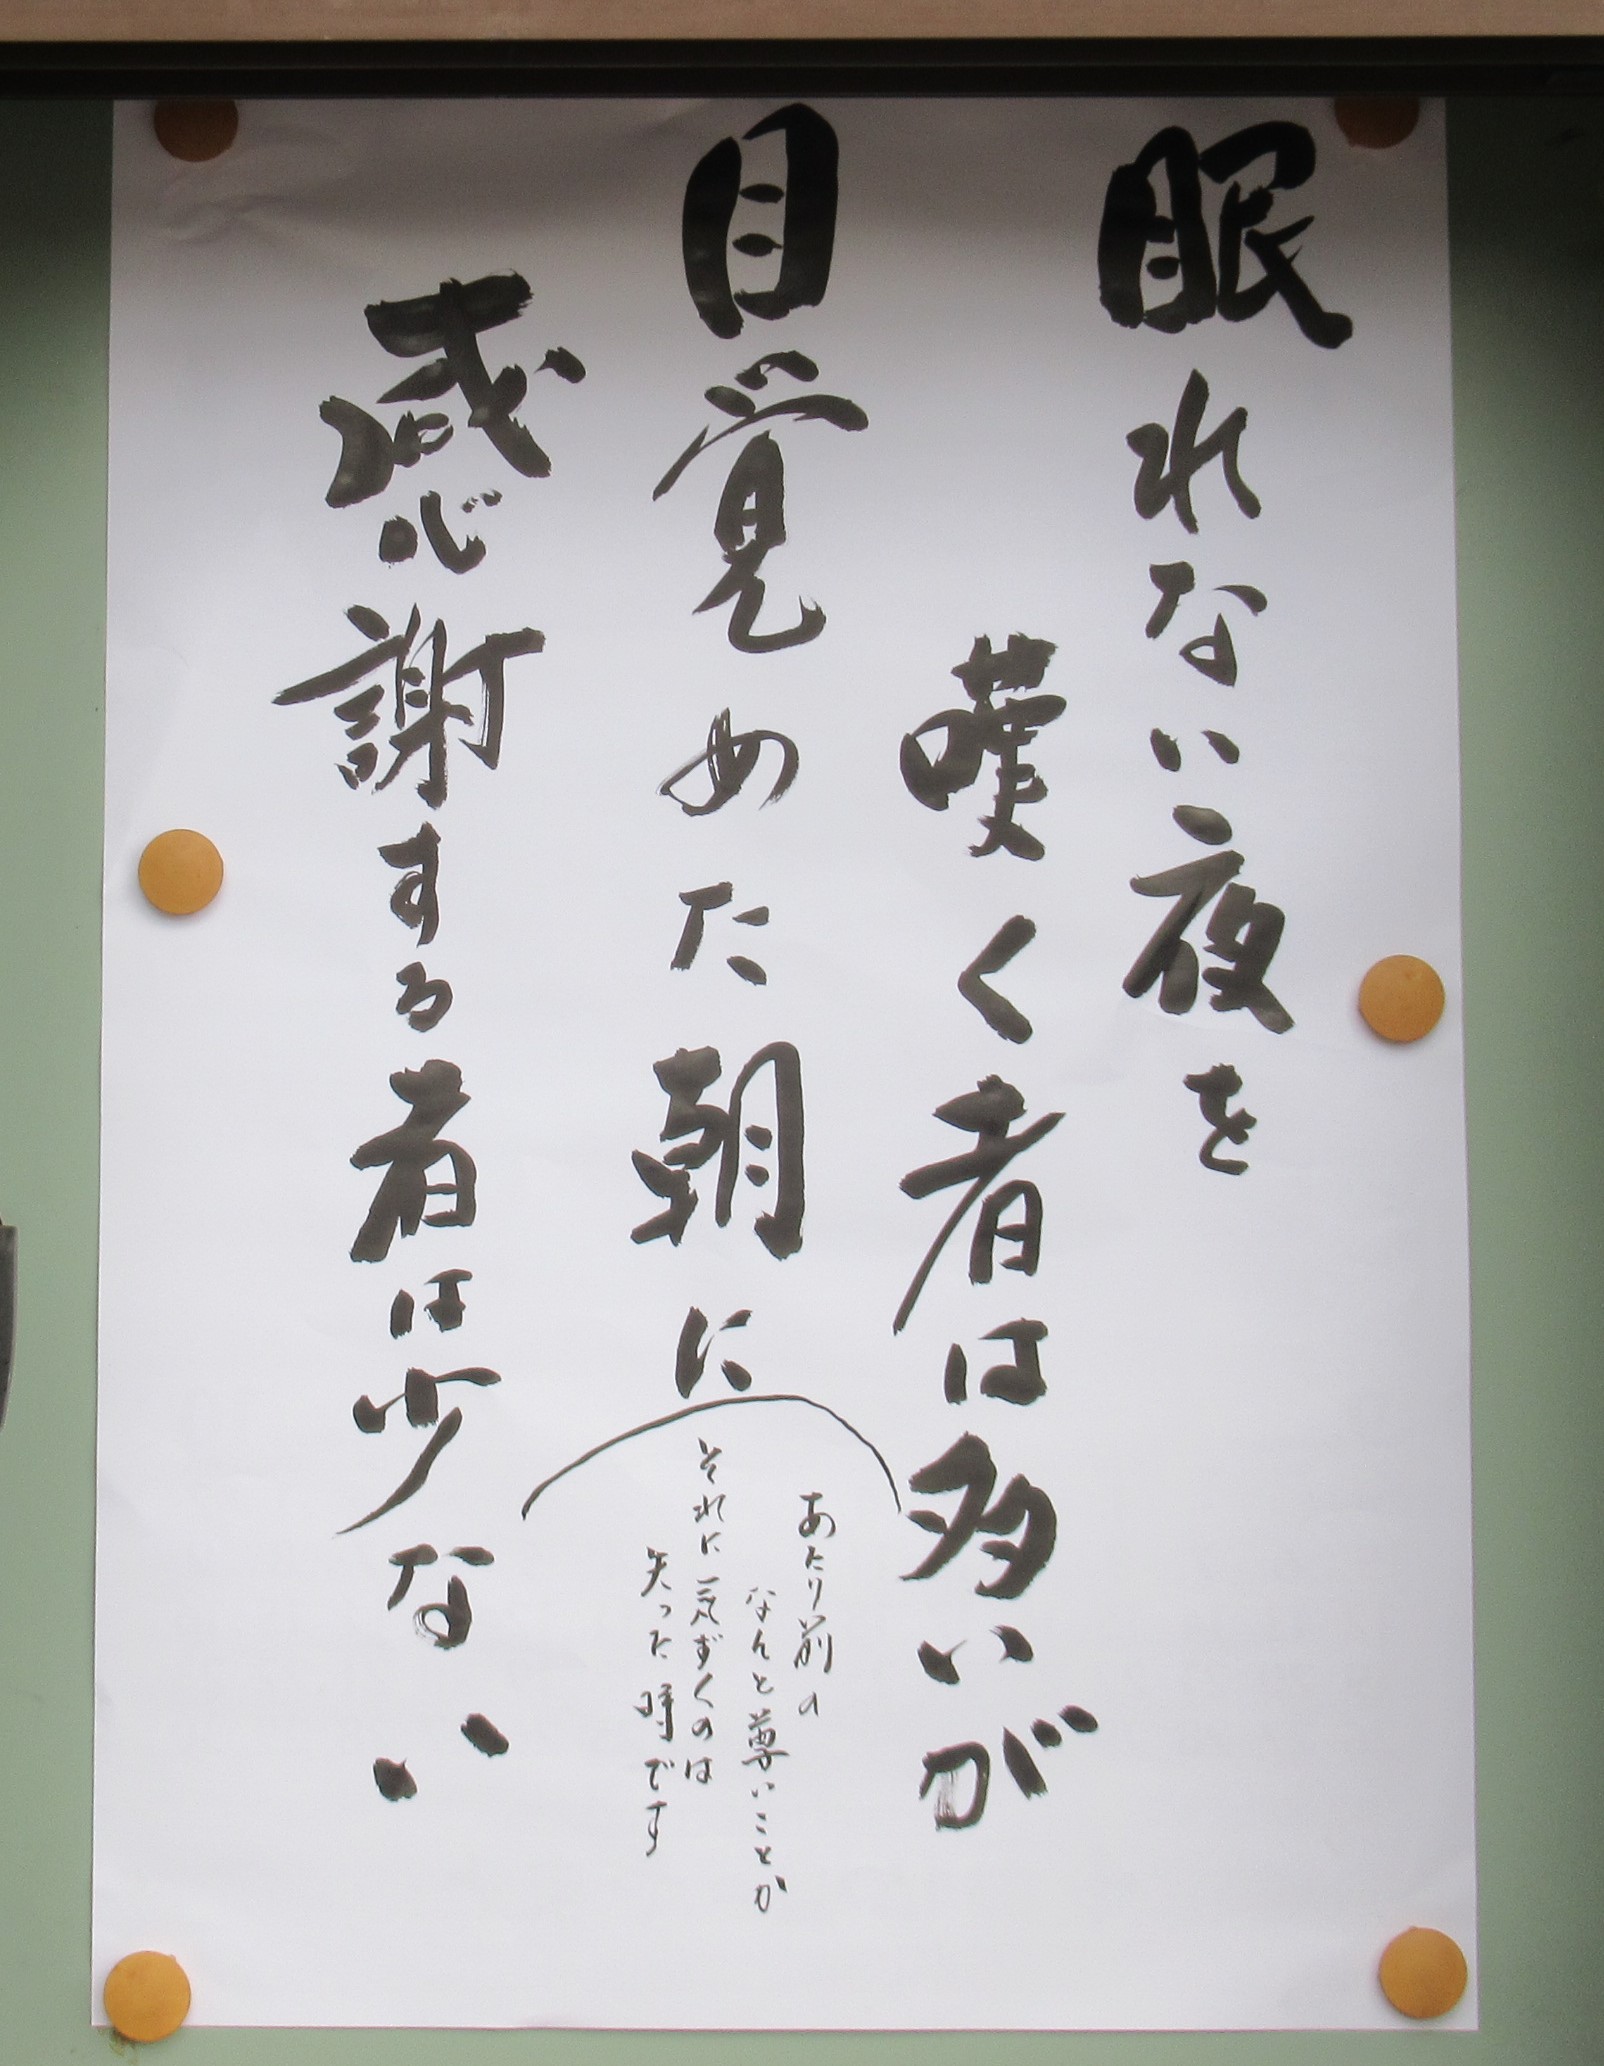 眠れない夜を
嘆く者は多いが
目覚めた朝に
感謝する者は少ない
あたり前の
なんと尊いことか
それに気ずくのは
失った時です